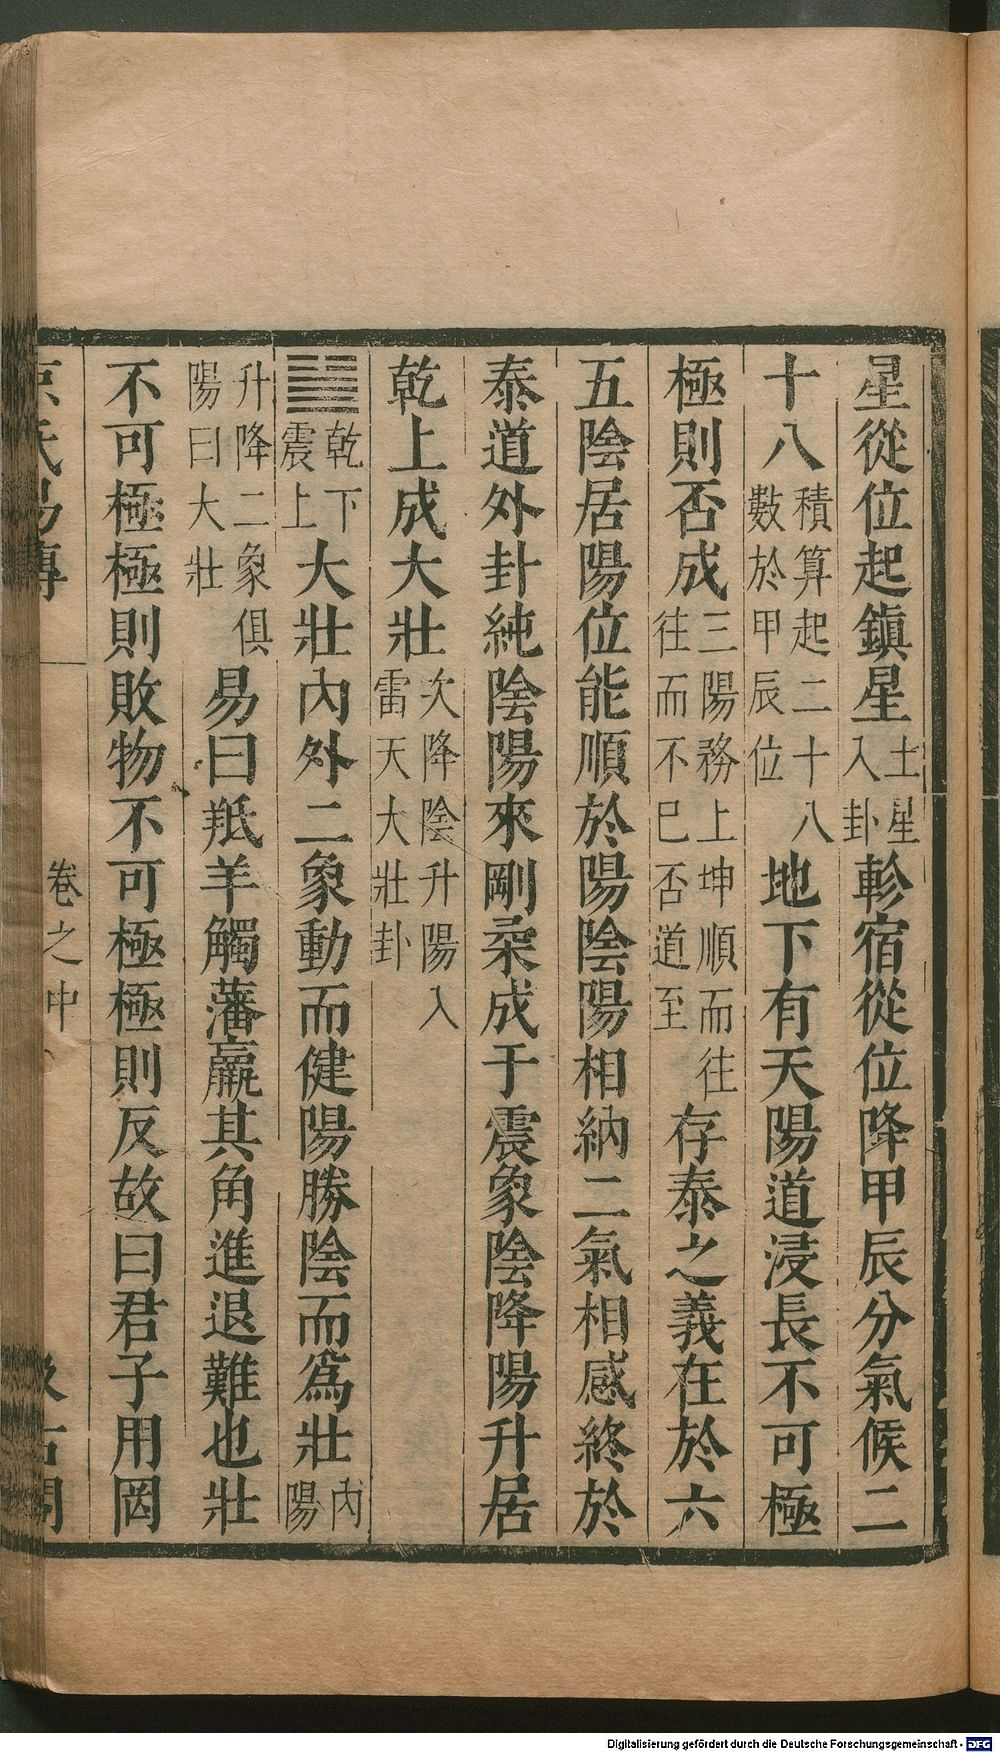 星從位起鎮星土星入卦軫宿從位降甲辰分氣候二
十八積算起二十八數於甲辰位地下有天陽道浸長不可極
極則否成三陽務上坤順而往往而不已否道至存泰之義在於六
五陰居陽位能順於陽陰陽相納二氣相感終於
泰道外卦純陰陽來剛柔成于震象陰降陽升居
乾上成大壯次降陰升陽入雷天大壯卦
乾下震上大壯內外二象動而健陽勝陰而爲壯內陽
升降二象俱陽曰大壯易曰羝羊觸藩羸其角進退難也壯
不可極極則敗物不可極極則反故曰君子用罔
京氏易傳 卷之中 汲古閣
Digitalisierung gefördert durch die Deutsche Forschungsgemeinschaft - DFG